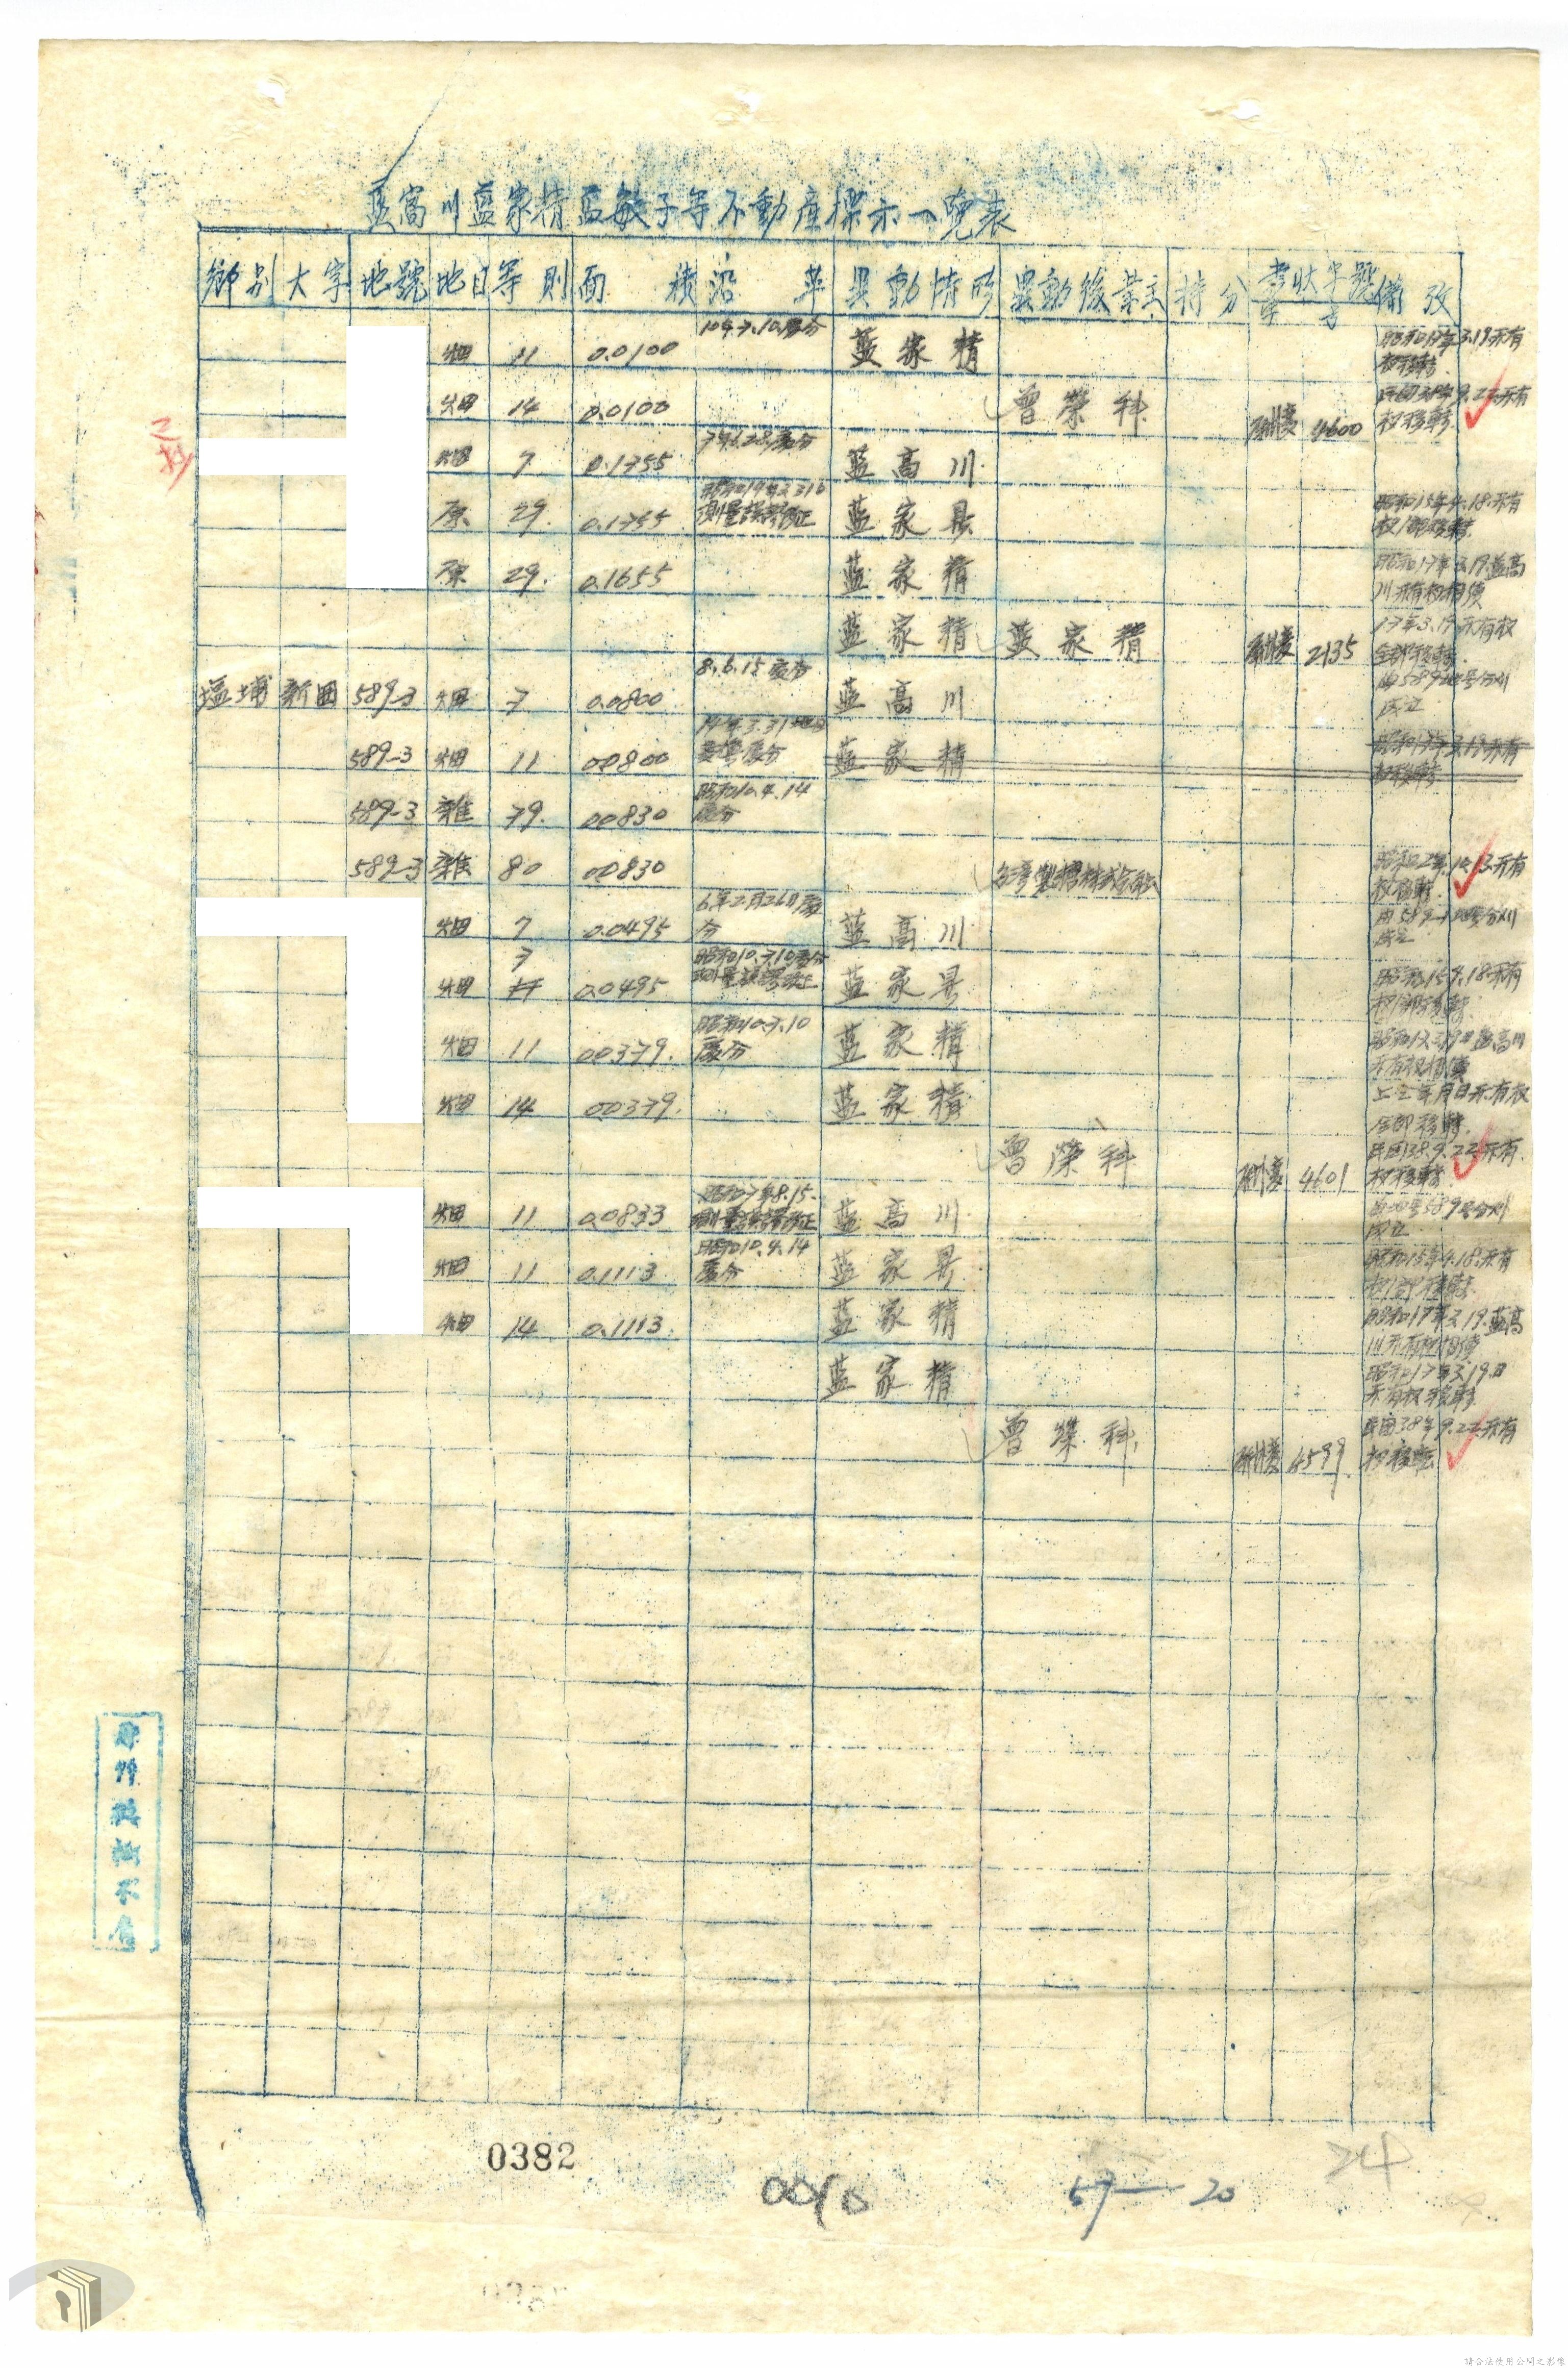 藍高川藍家精藍敏子等不動産標示一覽表
鄉別 大字 地號 地目 等則 面積 沿革 異動情形 異動後業主 持分 字號 備攷
畑 11 0.0100 10年7.10處分 藍家精 昭和17年3.19所有权移轉
畑 14 0.0100 曾榮科 4600 民國38年9.22所有权移轉
畑 7 0.1755 7年6.28處分 藍高川
原 29. 0.1755 測量誤謬訂正 藍家昇 昭和15年4.18.所有权1部移轉
原 29. 0.1655 藍家精 昭和17年3.19藍高川所有权相續
藍家精 藍家精 2135 17年3.19所有权全部移轉
塩埔 新围 589-3 畑 7 0.0800 8.6.15處分 藍高川 由589地号分割成立
589-3 畑 11 0.0800 14年3.31地目变换處分 藍家精 昭和17年3.19所有权移轉
589-3 雜 79. 0.0830 昭和10.4.14處分
589-3 雜 80 0.0830 台湾製糖株式会社 所有权移轉
畑 7 0.0495 6年2月26日處分 藍高川 由589-1地号分割成立
畑 7 0.0495 昭和10.7.10處分測量誤謬訂正 藍家昇 昭和15.4.18所有权1部移轉
畑 11 0.0379. 昭和10.7.10處分 藍家精 昭和17.3.19日藍高川所有权相續
畑 14 0.0379. 藍家精 上仝年月日所有权全部移轉
曾榮科 4601 民国38.9.22所有权移轉
畑 11 0.0833 昭和7年8.15.測量誤謬訂正 藍高川 589号分割成立
畑 11 0.1113 昭和10.4.14處分 藍家昇 昭和15年4.18.所有权1部移轉
畑 14 0.1113 藍家精 昭和17年3.19.藍高川所有权相續
藍家精 昭和17年3.19.日所有权移轉
曾榮科 4599 民国38年9.22所有权移轉
0382
0010
57—20
24
請合法使用公開之影像